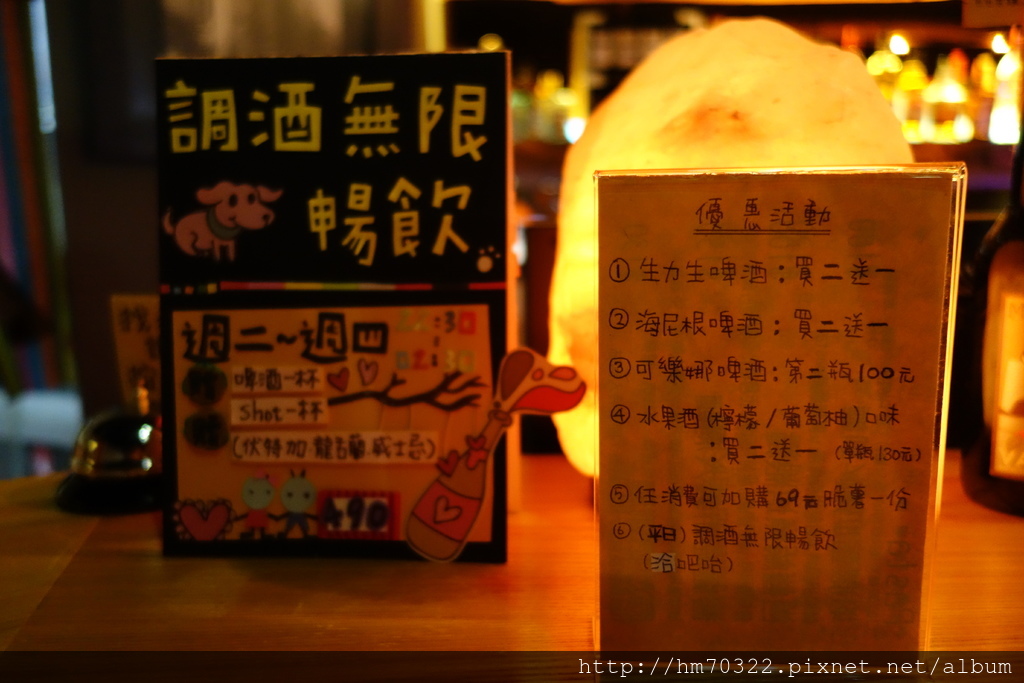 調酒無限
暢飲
週二~週四
啤酒一杯
shot一杯
(伏特加.龍舌蘭.威士忌)
490
優惠活動
① 生力生啤酒:買二送一
② 海尼根啤酒:買二送一
③ 可樂娜啤酒:第二瓶100元
④ 水果酒(檸檬/葡萄柚)口味
:買二送一 (單瓶130元)
⑤ 任消費可加購69元脆薯一份
⑥ (平日)調酒無限暢飲
(洽吧台)
http://hm70322.pixnet.net/album